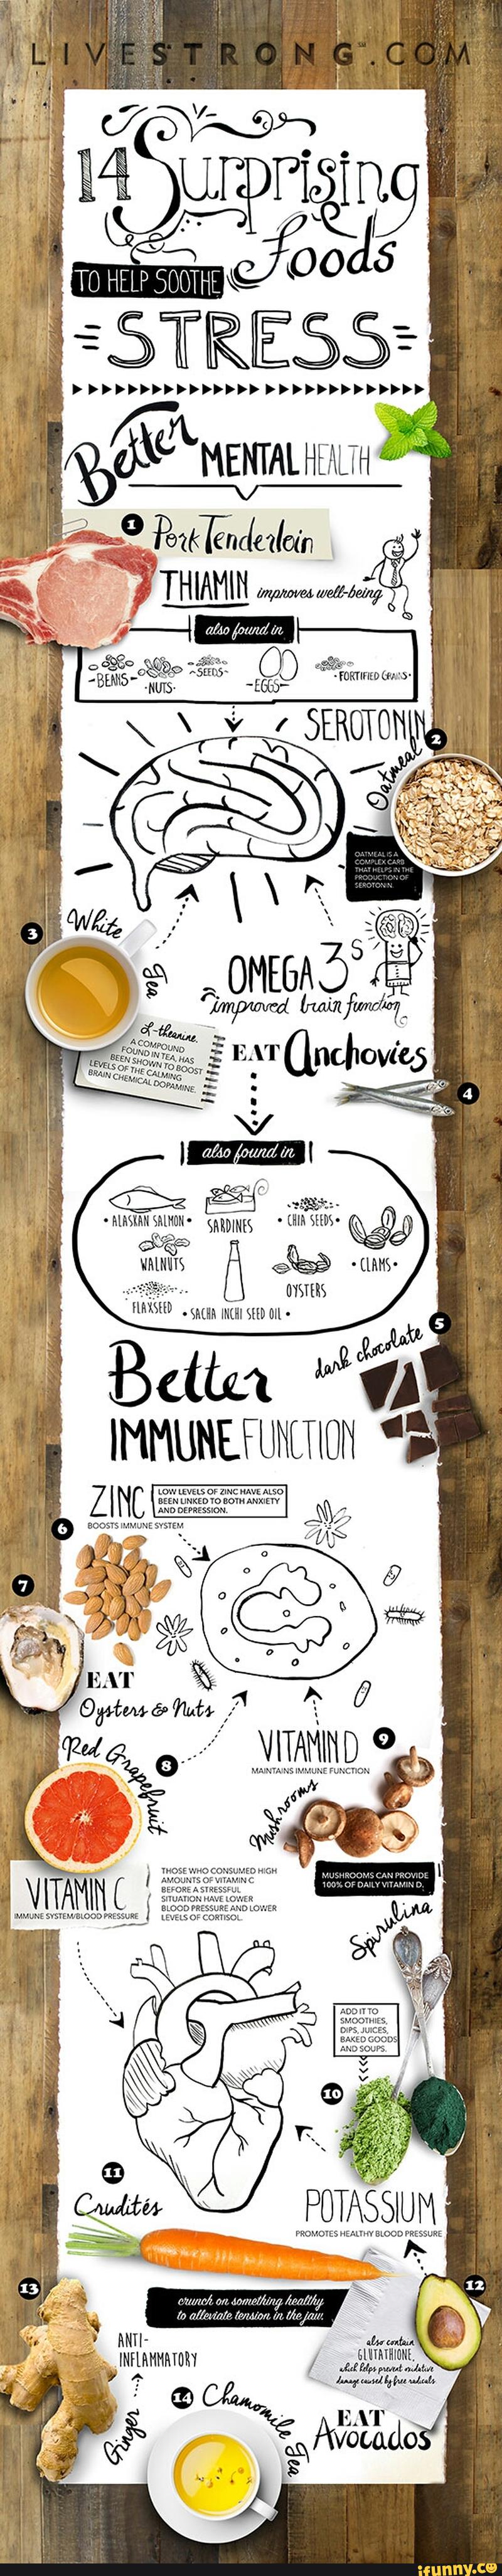 LIVESTRONG.COM
14 Surprising
foods
TO HELP SOOTHE
STRESS
Better
MENTAL HEALTH
1 Pork Tenderloin
THIAMIN improves well-being
also found in
BEANS
NUTS
SEEDS
EGGS
FORTIFIED GRAINS
SEROTONIN
2
Oatmeal
OATMEAL IS A
COMPLEX CARB
THAT HELPS IN THE
PRODUCTION OF
SEROTONIN.
3
White
Tea
L-theanine.
A COMPOUND
FOUND IN TEA, HAS
BEEN SHOWN TO BOOST
LEVELS OF THE CALMING
BRAIN CHEMICAL DOPAMINE.
OMEGA 3s
improved brain function
EAT Anchovies
4
also found in
• ALASKAN SALMON •
SARDINES
• CHIA SEEDS •
WALNUTS
• CLAMS •
OYSTERS
FLAXSEED
• SACHA INCHI SEED OIL •
5
dark chocolate
Better
IMMUNE FUNCTION
ZINC
LOW LEVELS OF ZINC HAVE ALSO
BEEN LINKED TO BOTH ANXIETY
AND DEPRESSION.
BOOSTS IMMUNE SYSTEM
6
7
EAT
Oysters & Nuts
Red Grapefruit
8
VITAMIN D
9
MAINTAINS IMMUNE FUNCTION
Mushrooms
MUSHROOMS CAN PROVIDE
100% OF DAILY VITAMIN D.
VITAMIN C
IMMUNE SYSTEM/BLOOD PRESSURE
THOSE WHO CONSUMED HIGH
AMOUNTS OF VITAMIN C
BEFORE A STRESSFUL
SITUATION HAVE LOWER
BLOOD PRESSURE AND LOWER
LEVELS OF CORTISOL.
Spirulina
ADD IT TO
SMOOTHIES,
DIPS, JUICES,
BAKED GOODS
AND SOUPS.
10
11
Crudités
POTASSIUM
PROMOTES HEALTHY BLOOD PRESSURE
crunch on something healthy
to alleviate tension in the jaw.
12
also contain
GLUTATHIONE,
which helps prevent oxidative
damage caused by free radicals.
13
ANTI-
INFLAMMATORY
Ginger
14 Chamomile Tea
EAT
Avocados
ifunny.co